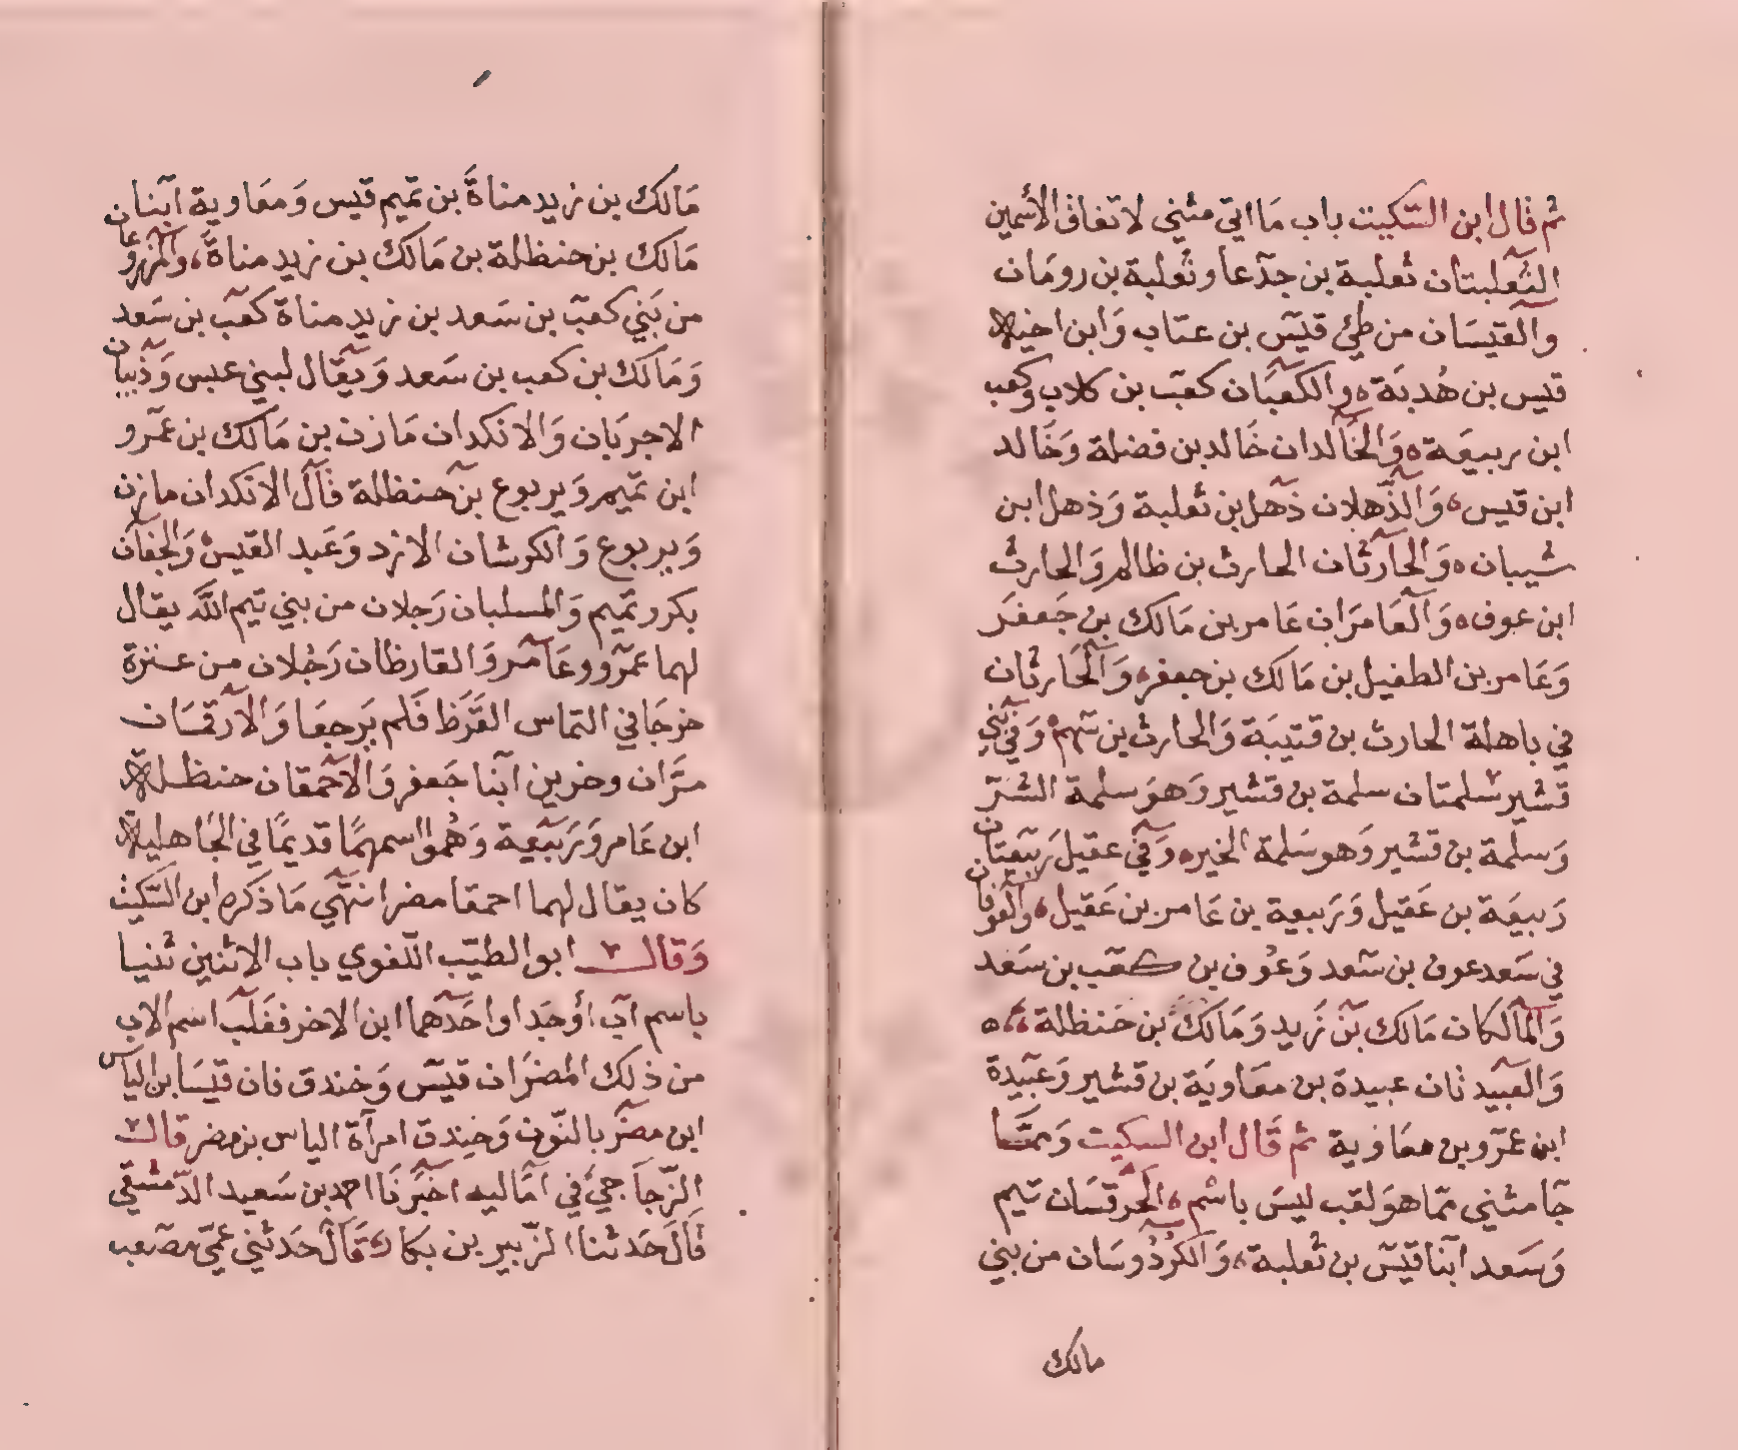 ثم قال ابن السكيت باب ما اتي مثني لاتفاق الأسمين
الثعلبتان ثعلبة بن جدعا وثعلبة بن رومان
والقيسان من طيّ قيس بن عتاب وابن اخيه
قيس بن هُدبَة ٥ والكعبان كعب بن كلاب وكعب
ابن ربيعَة ٥ والخالدان خَالد بن فضلة وَخَالد
ابن قيس ٥ وَالذّهلان ذهل بن ثعلبة وَذهل ابن
شيبان ٥ وَالحارثان الحارث بن ظالم وَالحارث
ابن عوف ٥ وَالعَامرَان عَامر بن مَالك بن جَعفَر
وَعَامر بن الطفيل بن مَالك بن جعفر ٥ وَالحَارثان
في باهلة الحارث بن قتيبَة وَالحارث بن سهم ٥ وَفي بني
قشير سلمتان سلمة بن قشير وَهوَ سلمة الشرّ
وَسلمة بن قشير وَهو سَلمة الخير ٥ وَفي عقيل رَبيعَتان
رَبيعَة بن عَقيل وَرَبيعة بن عَامر بن عَقيل ٥ والعوفان
في سَعد عوف بن سَعد وَعوف بن كعب بن سَعد
وَالمالكان مَالك بن زَيد وَمَالك بن حَنظلة ٥ ٥
وَالعبيد تان عبيدة بن معَاويَة بن قشير وَعَبيدة
ابن عمرو بن معَاوية ثم قَال ابن السكيت وَممَّا
جَآ مثني ممّا هوَ لقب ليسَ باسْم ٥ الحُرقسَان تيم
وَسَعد ابنا قيس بن ثعلبة ٥ وَالكرْدُوسَان من بني
مالك
مَالك بن زيد مناةَ بن تميم قيس وَمعَاوية ابنان
مَالك بن حنظلة بن مَالك بن زيد مناةَ ٥ والمزروعان
من بَني كعب بن سَعد بن زيد مناة كعب بن سَعد
وَمَالك بن كعب بن سَعد وَيقَال لبني عبس وَذبيان
الاجربَان وَالانكدان مَازن بن مَالك بن عمرو
ابن تميم وَيربوع بن حنظلة قَال الانكدان مازن
وَيربوع وَالكرشان الازد وَعَبد القيس وَالجفان
بكر وتميم وَالمسلبان رَجلان من بني تيم الله يقال
لهما عمرو وعَامر وَالقارظان رَجُلان من عنزة
خرجَا في التماس القَرَظ فَلم يَرجعَا وَالارقسَان
مرَّان وحزين ابنا جَعفر وَالاحمقان حنظلة
ابن عَامر وَرَبيعة وَهُو اسمهمَا قديمًا في الجَاهلية
كان يقال لهما احمقا مضر انتهَي مَا ذَكره ابن السّكيت
وَقال ابو الطيّب اللّغوي باب الاثنين ثنيا
باسم اب أوجَد او احَدهما ابن الاخر فغَلب اسم الاب
من ذلك المضرَان قيس وَخندق فان قيسَا بن الياس
ابن مضر بالنّون وَخِندق امرأة الياس بن مضر قال
الزّجاجيّ في اماليه اخبَرنَا احمد بن سَعيد الدّمشقي
قَالَ حَدثنا الزّبير بن بكار قَالَ حَدثني عَمّي مصعب